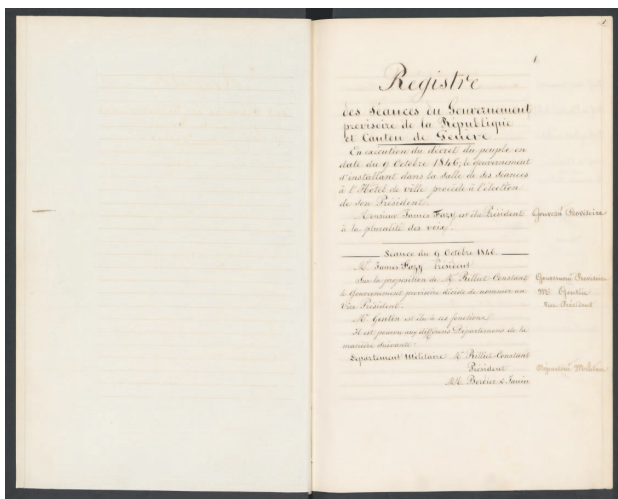 1
Registre
des séances du Gouvernement
provisoire de la République
et Canton de Genève
En exécution du décret du peuple en
date du 9 Octobre 1846, le gouvernement
s'installant dans la salle de ses séances
à l'Hôtel de ville procède à l'élection
de son Président.
Monsieur James Fazy est élu Président
à la pluralité des voix.
Gouverné Provisoire
Séance du 9 Octobre 1846
Mr James Fazy Président
Sur la proposition de Mr Rilliet-Constant
le Gouvernement provisoire décide de nommer un
Vice Président.
Gouverné Provisoire
Mr Gentin
Vice Président
Mr Gentin est élu à ces fonctions.
Il est pourvu aux différens Départemens de la
manière suivante:
Département Militaire Mr Rilliet-Constant
Président
Départemt Militaire
MM. Bordier & Janin